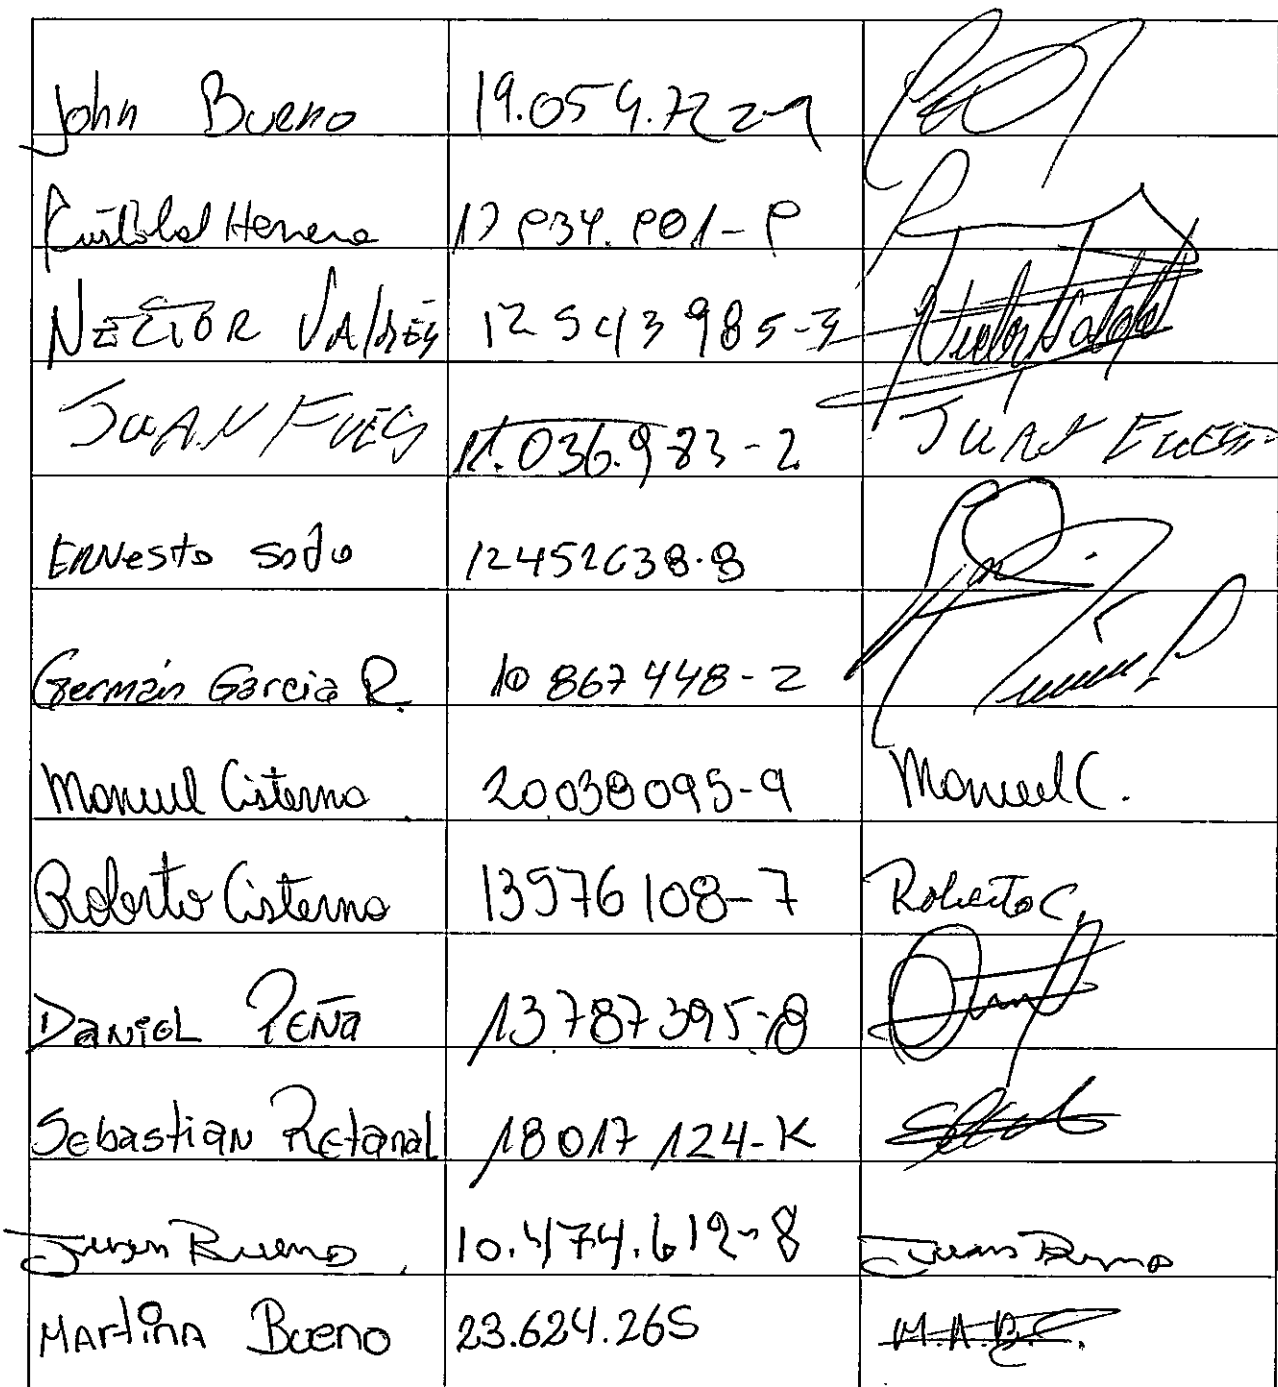 John Bueno 19.054.722-9
Cristobal Herrera 17 834.801-8
NECTOR VALDES 12 543 985-3
JUAN FUES 11.036.983-2 JUAN FUES
ERNesto soto 12452638-8
Germán Garcia R. 10 867 448-2
Manuel Cisterna 20038095-9 Manuel C.
Roberto Cisterna 13576108-7 Roberto C.
DANIEL PEÑA 13.787395-8
Sebastian Retamal 18017124-K
Juan Bueno. 10.474.612-8 Juan Bueno
MArtinA Bueno 23.624.265 M.A.B.C.